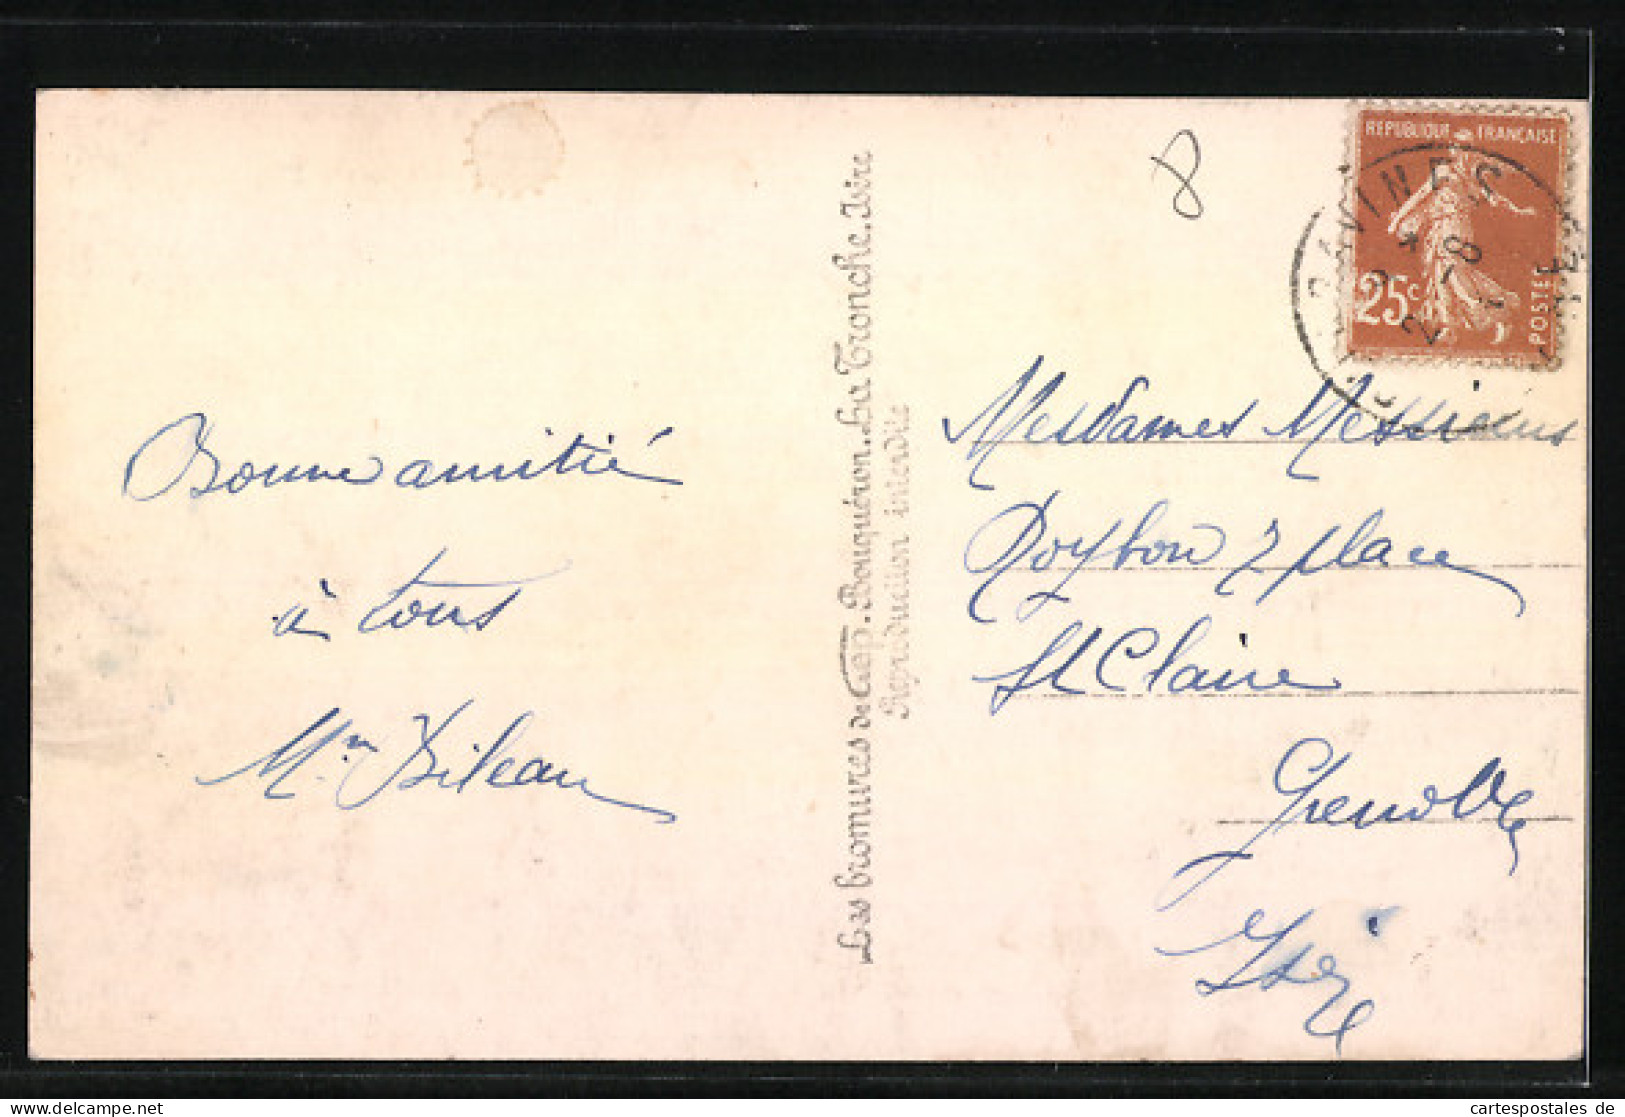 Bonne amitié
à tous
Les bromures de Cap. Bouquéron. La Tronche. Isère
Reproduction interdite
8
REPUBLIQUE FRANÇAISE
25c
POSTES
Mesdames Messieurs
Roybon 7 place
St Claire
Grenoble
Isère
cartespostales de